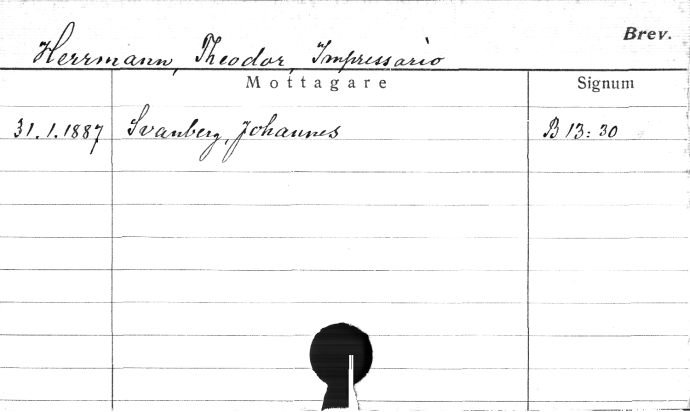 Brev.
Herrmann, Theodor, Impressario
Mottagare Signum
31.1.1887 Svanberg, Johannes B 13:30